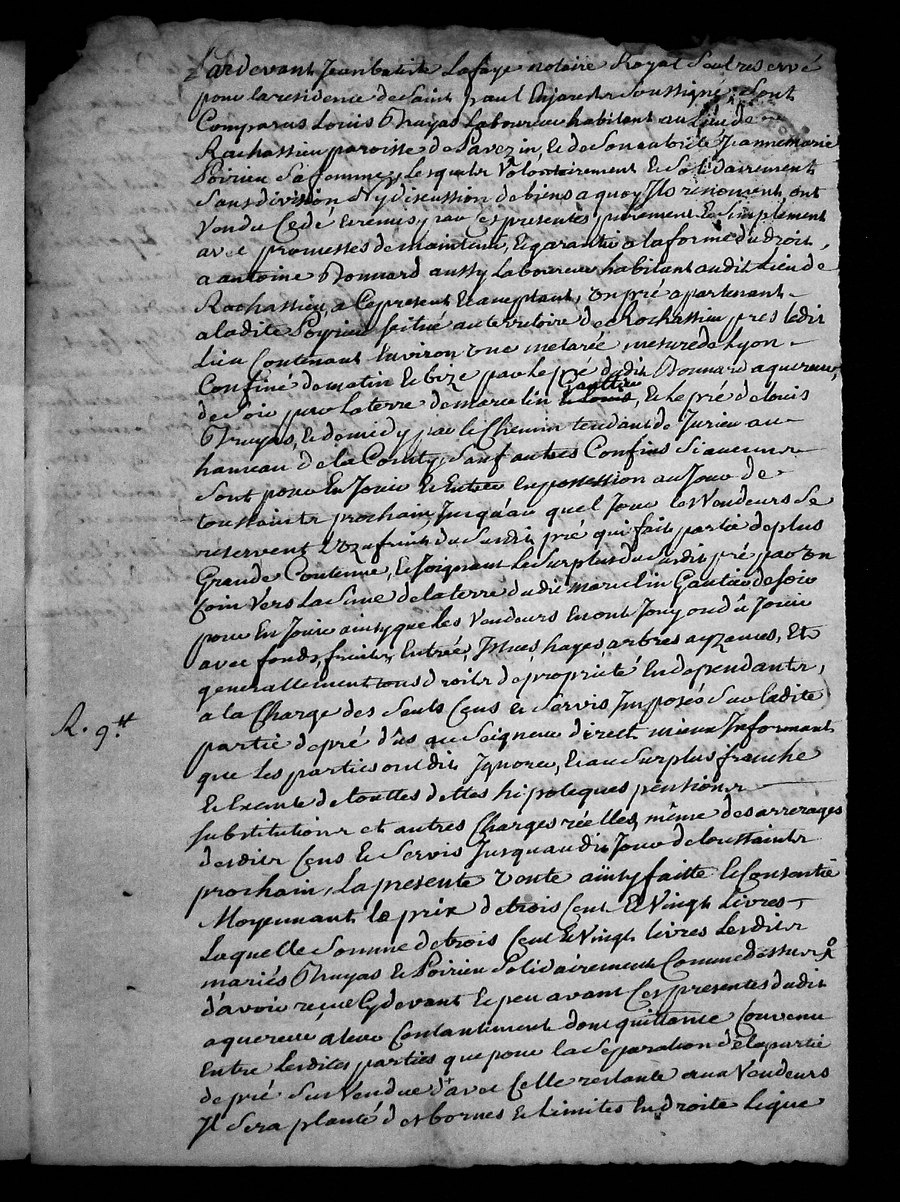 Pardevant Jeanbatiste Lafaye notaire Royal Seul reservé
pour la residence de Saint paul Enjarest Soussigné, Sont
Comparus Louis Thuyas Laboureur habitant au Lieu de
Rochassieu paroisse de Pavezin, et de Son autorité Jeannemarie
Poirieu Sa femme, Lesquels Volontairement et Solidairement
Sans division Ny discussion de biens a quoy Ils renoncent, ont
Vendu Cedé et remis par Ces presentes purement et Simplement
avec promesses de maintenir, et garantir a la forme du droit,
a antoine Bonnard aussy Laboureur habitant audit Lieu de
Rochassieu, a Ce present et acceptant, Un pré apartenant
a ladite Poyrieu Scitué au territoire de Rochassieu, pres ledit
Lieu Contenant Environ une metarée, mesure de Lyon
Confiné de matin et bize par le pré dudit Bonnard aquereur,
de Soir par la terre de marcelin Gauttier et Louis, et le pré de Louis
Thuyas, et de midy par le Chemin tendant de Jurieu au
hameau de la Conty, Sauf autres Confins Si aucuns
Sont pour En Jouir et Entrer en possession au Jour de
toussaints prochain, Jusqu'au quel Jour les Vendeurs Se
reservent L'uzufruit du Susdit pré qui fait partie de plus
Grande Contenue, et Joignant le Surplus du Susdit pré par un
Coin vers La Sime de la terre dudit marcelin Gautier de Soir
pour En Jouir ainsy que les Vendeurs En ont Jouy ou dû Jouir
avec fonds, fruits, Entrées, Issues hayes arbres ayzances, Et
generallement tous droits de propriété En dependants,
a la Charge des Seuls Cens et Servis Imposés Sur ladite
partie de pré dûs au Seigneur direct mieux Informant
que les parties ont dit Ignorer, et au Surplus franche
Et Exante de touttes dettes hipoteques pensions
Substitutions et autres Charges réelles, même des arrerages
desdits Cens et Servis Jusqu'audit Jour de toussaints
prochain, La presente vente ainsy faitte et Consantie
Moyennant le prix de trois Cent et Vingt Livres
Laquelle Somme de trois Cent et Vingt livres Lesdits
mariés Thuyas et Poirieu Solidairement Comme dessus ont
d'avoir reçue Cy devant et peu avant Ces presentes dudit
aquereur a leur Contantement dont quittance Convenu
Entre Lesdites parties que pour la Separation de la partie
de pré Sus Vendue d'avec Celle restante aux Vendeurs
Il Sera planté des bornes et Limites En droite Ligne
R. 9.tt